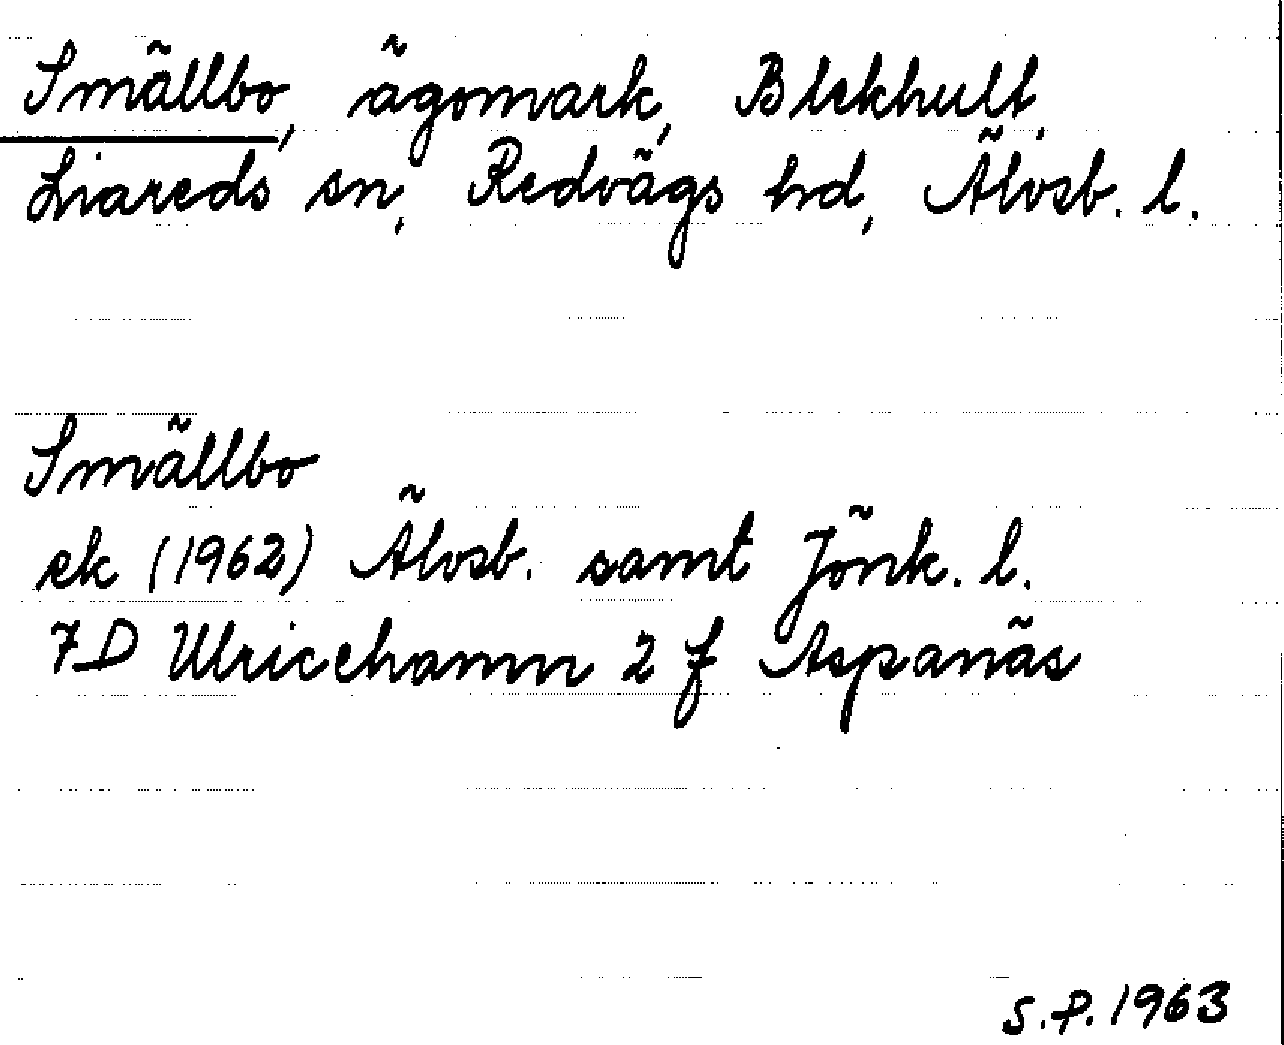 Smällbo, ägomark, Blekhult,
Liareds sn, Redvägs hd, Älvsb. l.
Smällbo
ek (1962) Älvsb. samt Jönk. l.
7D Ulricehamn 2 f Aspanäs
S.P. 1963